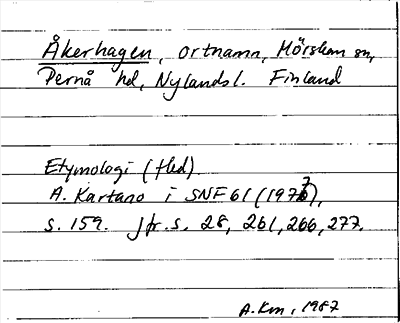 Åkerhagen, ortnamn, Mörskom sn,
Pernå hd, Nylands l. Finland
Etymologi (fled)
A. Kartano i SNF 61 (1977),
s. 159. Jfr. s. 28, 261, 266, 277.
A. Km, 1987